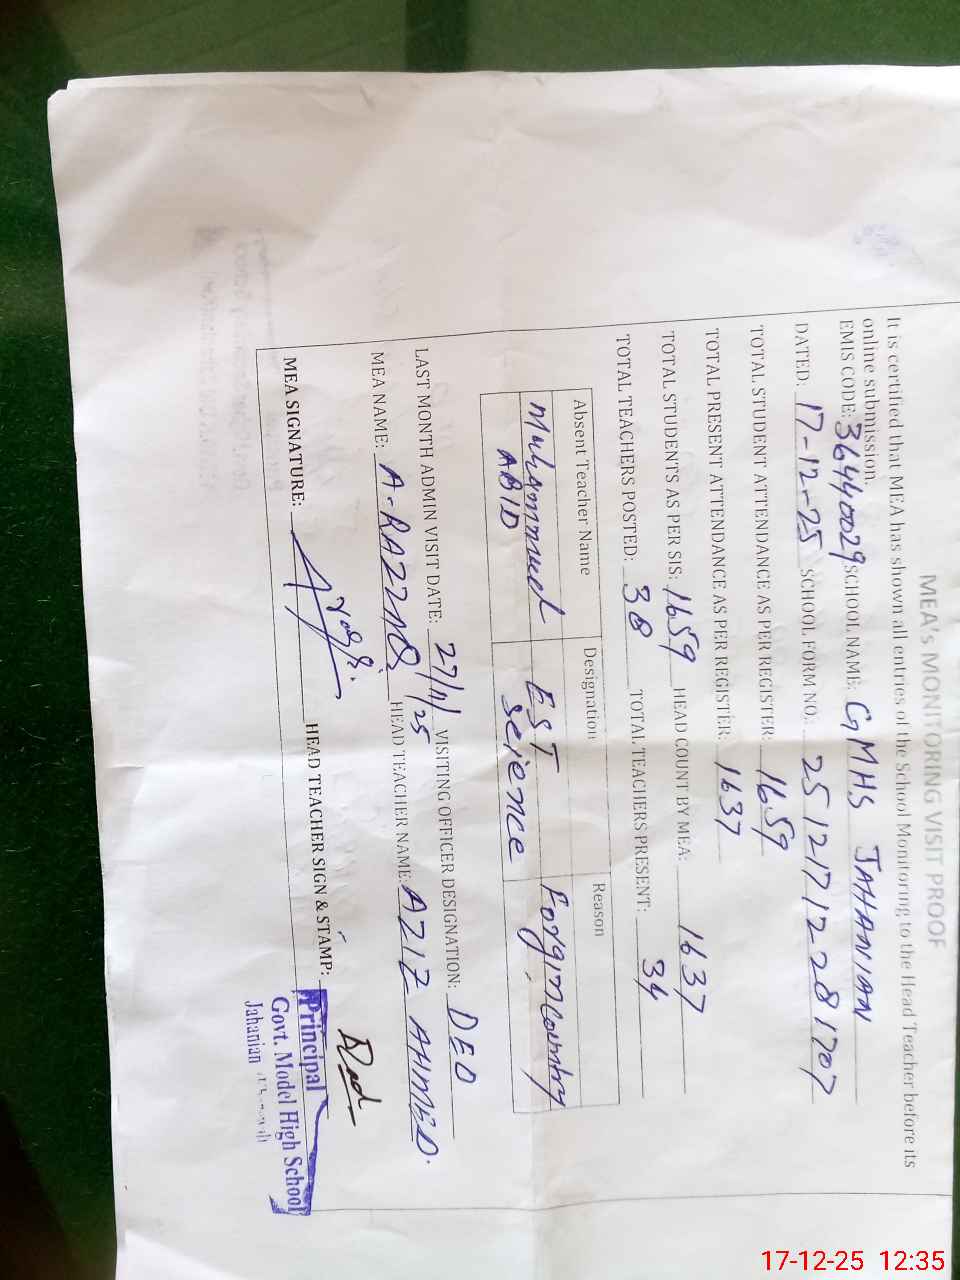 MEA's MONITORING VISIT PROOF
It is certified that MEA has shown all entries of the School Monitoring to the Head Teacher before its
online submission.
EMIS CODE: 36440029 SCHOOL NAME: GMHS JAHANIAN
DATED: 17-12-25 SCHOOL FORM NO: 25121712281707
TOTAL STUDENT ATTENDANCE AS PER REGISTER: 1659
TOTAL PRESENT ATTENDANCE AS PER REGISTER: 1637
TOTAL STUDENTS AS PER SIS: 1659 HEAD COUNT BY MEA: 1637
TOTAL TEACHERS POSTED: 38 TOTAL TEACHERS PRESENT: 34
Absent Teacher Name Designation Reason
Muhammad EST Forgin Country
ABID Science
LAST MONTH ADMIN VISIT DATE: 27/11/25 VISITING OFFICER DESIGNATION: DEO
MEA NAME: A-RAZZAQ HEAD TEACHER NAME: AZIZ AHMED.
MEA SIGNATURE: HEAD TEACHER SIGN & STAMP:
Principal
Govt. Model High School
Jahanian
17-12-25 12:35